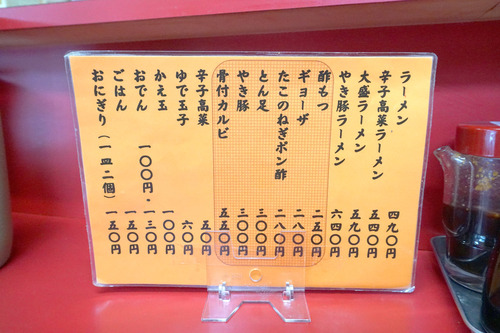 ラーメン 四九〇円
辛子高菜ラーメン 五四〇円
大盛ラーメン 五九〇円
やき豚ラーメン 六四〇円
酢もつ 二五〇円
ギョーザ 二八〇円
たこのねぎポン酢 二八〇円
とん足 三〇〇円
やき豚 三〇〇円
骨付カルビ 五五〇円
辛子高菜 五〇円
ゆで玉子 六〇円
かえ玉 一〇〇円
おでん 一〇〇円・一三〇円
ごはん 一五〇円
おにぎり(一皿二個) 一五〇円